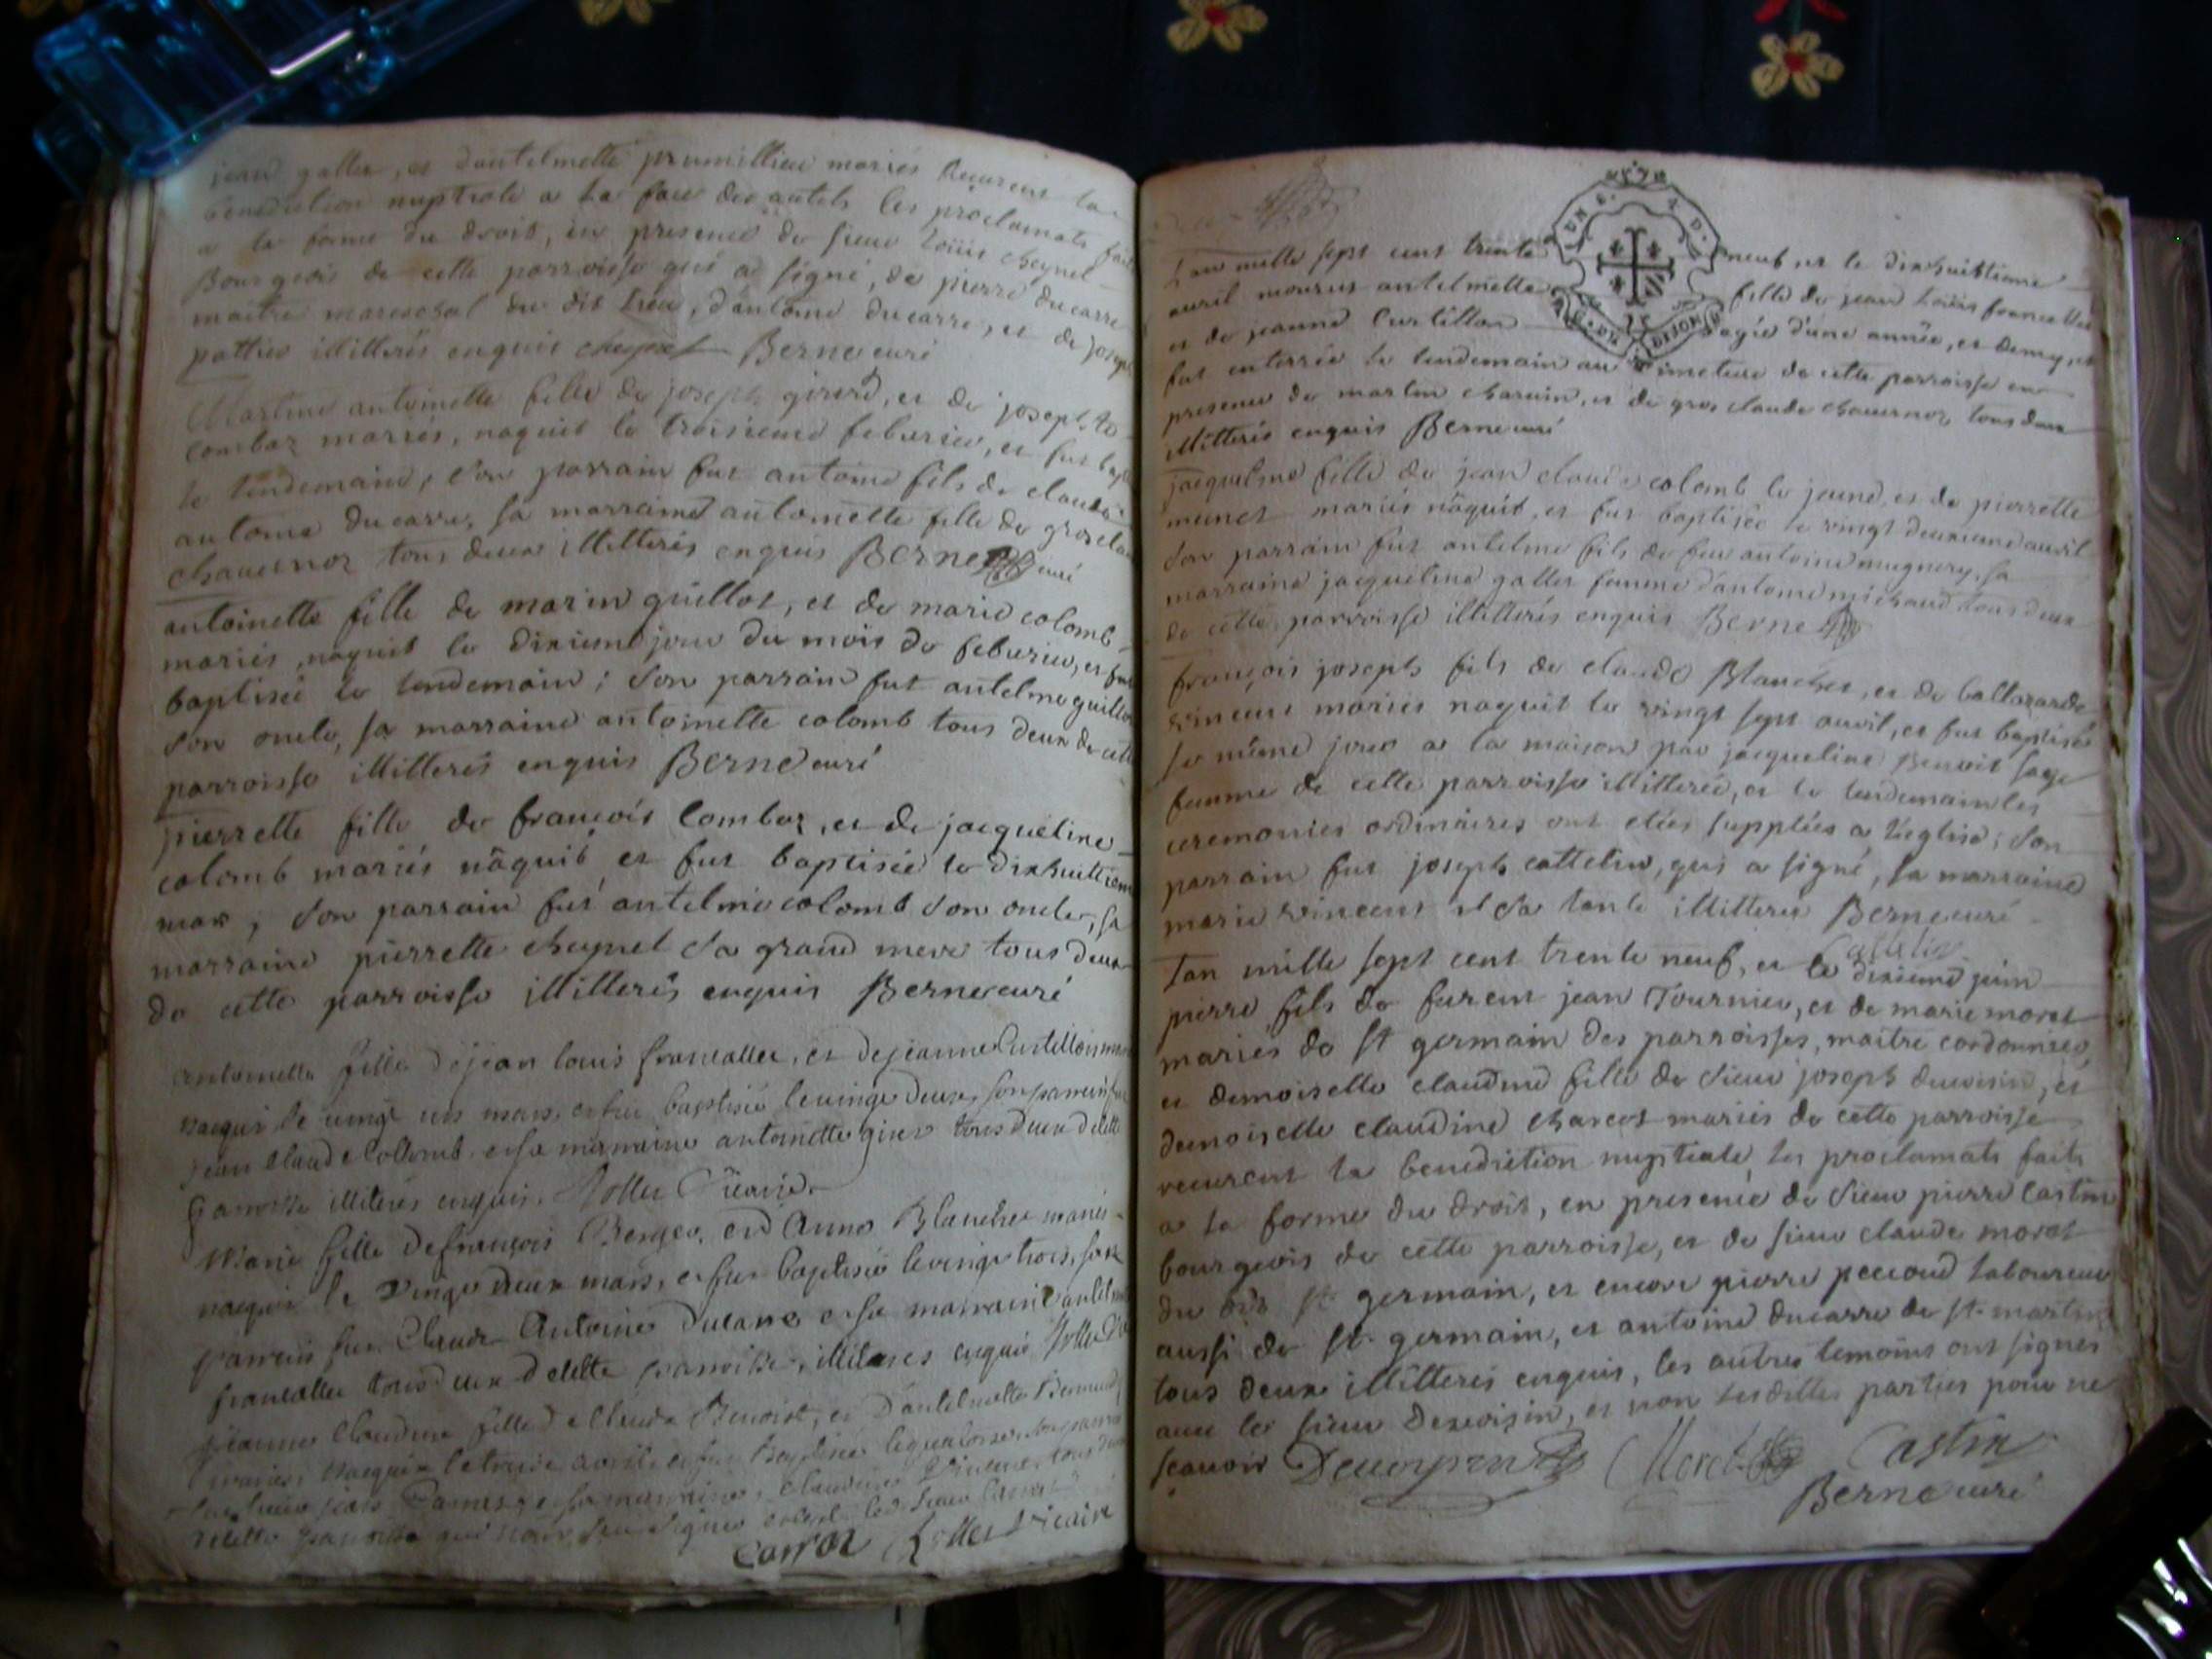 jean galler, et d'antelmette prumillieu mariés recurent la
benediction nuptiale a la face des autels les proclamats faits
a la forme du droit, en presence de sieur Loüis cheynel
Bourgeois de cette parroisse qui a signé, de pierre ducarre
maitre mareschal du dit lieu, d'antoine ducarre, et de joseph
pattier illitterés enquis cheynel Berne curé
Martine antoinette fille de joseph girerd, et de josephte
combaz mariés, naquit le troisieme feburier, et fut bapt
le lendemain; son parrain fut antoine fils de claude
antoine ducarre, sa marraine antoinette fille de grosclau
chauernoz tous deux illitterés enquis Berne curé
antoinette fille de marin guillot, et de marie colomb
mariés, naquit le dixieme jour du mois de feburier, et fut
baptisée le lendemain; son parrain fut antelme guillot
son oncle, sa marraine antoinette colomb tous deux de cette
parroisse illitterés enquis Berne curé
pierrette fille de françois Combaz, et de jacqueline
colomb mariés nâquit et fut baptisée le dixhuittieme
mar; son parrain fut antelme colomb son oncle, sa
marraine pierrette cheynel sa grand mere tous deux
de cette parroisse illitterés enquis Berne curé
antoinette fille de jean louis francallet, et de jeanne Curtillon
naquit le vingt un mars, et fut baptisée le vingt deux, son parrain fut
jean Claude Collomb et sa marraine antoinette girer tous deux de cette
parroisse illiterés enquis.
Marie fille de françois Berger, et d'Anne Blanchet mariés
naquit le vingt deux mars, et fut baptisée le vingt trois, son
parrain fut Claude Antoine Ducarre et sa marraine antelm
francallet tous deux de cette parroisse, illiterés enquis
jeanne Claudine fille de Claude Benoist, et d'antelmette
mariés naquit le treize avril et fut Baptisée le quatorze, son parrain
fut sieur jean et sa marraine Claudine Vincent tous deux
de cette parroisse
Carrot Vicaire
L'an mille sept cent trente neuf, et le dixhuittieme
auril mourut antelmette fille de jean Loüis francallet
et de jeanne Curtillon agée d'une année, et demy, et
fut enterrée le lendemain au cimetiere de cette parroisse en
presence de martin charuin, et de gros claude chauernoz, tous deux
illitterés enquis Berne curé
jacqueline fille de jean claude colomb le jeune, et de pierrette
munet mariés nâquit, et fut baptisée le vingt deuxieme auril
son parrain fut antelme fils de feu antoine mugnery, sa
marraine jacqueline gallet femme d'antoine michaud tous deux
de cette parroisse illitterés enquis Berne
françois joseph fils de claude Blanchet, et de baltazarde
vincent mariés naquit le vingt sept auril, et fut baptisé
le même jour a la maison par jacqueline Benoit sage
femme de cette parroisse illitterée, et le lendemain les
ceremonies ordinaires ont etées supplées a l'eglise; son
parrain fut joseph cattelin, qui a signé, sa marraine
marie vincent sa tante illitterés Berne curé
Cattelin
L'an mille sept cent trente neuf, et le dixieme juin
pierre fils de furent jean Tournier, et de marie morel
mariés de St germain des parroisses, maitre cordonnier,
et demoiselle claudine fille de sieur joseph deuoisin, et
demoiselle claudine charcot mariés de cette parroisse
recurent la benediction nuptiale, les proclamats faits
a la forme du droit, en presence de sieur pierre Castin
bourgeois de cette parroisse, et de sieur claude morel
du dit St germain, et encore pierre peccoud laboureur
aussi de St germain, et antoine ducarre de St martin
tous deux illitterés enquis, les autres temoins ont signés
auec les sieur Deuoisin, et non lesdittes parties pour ne
scauoir Deuoysin Morel Castin
Berne curé